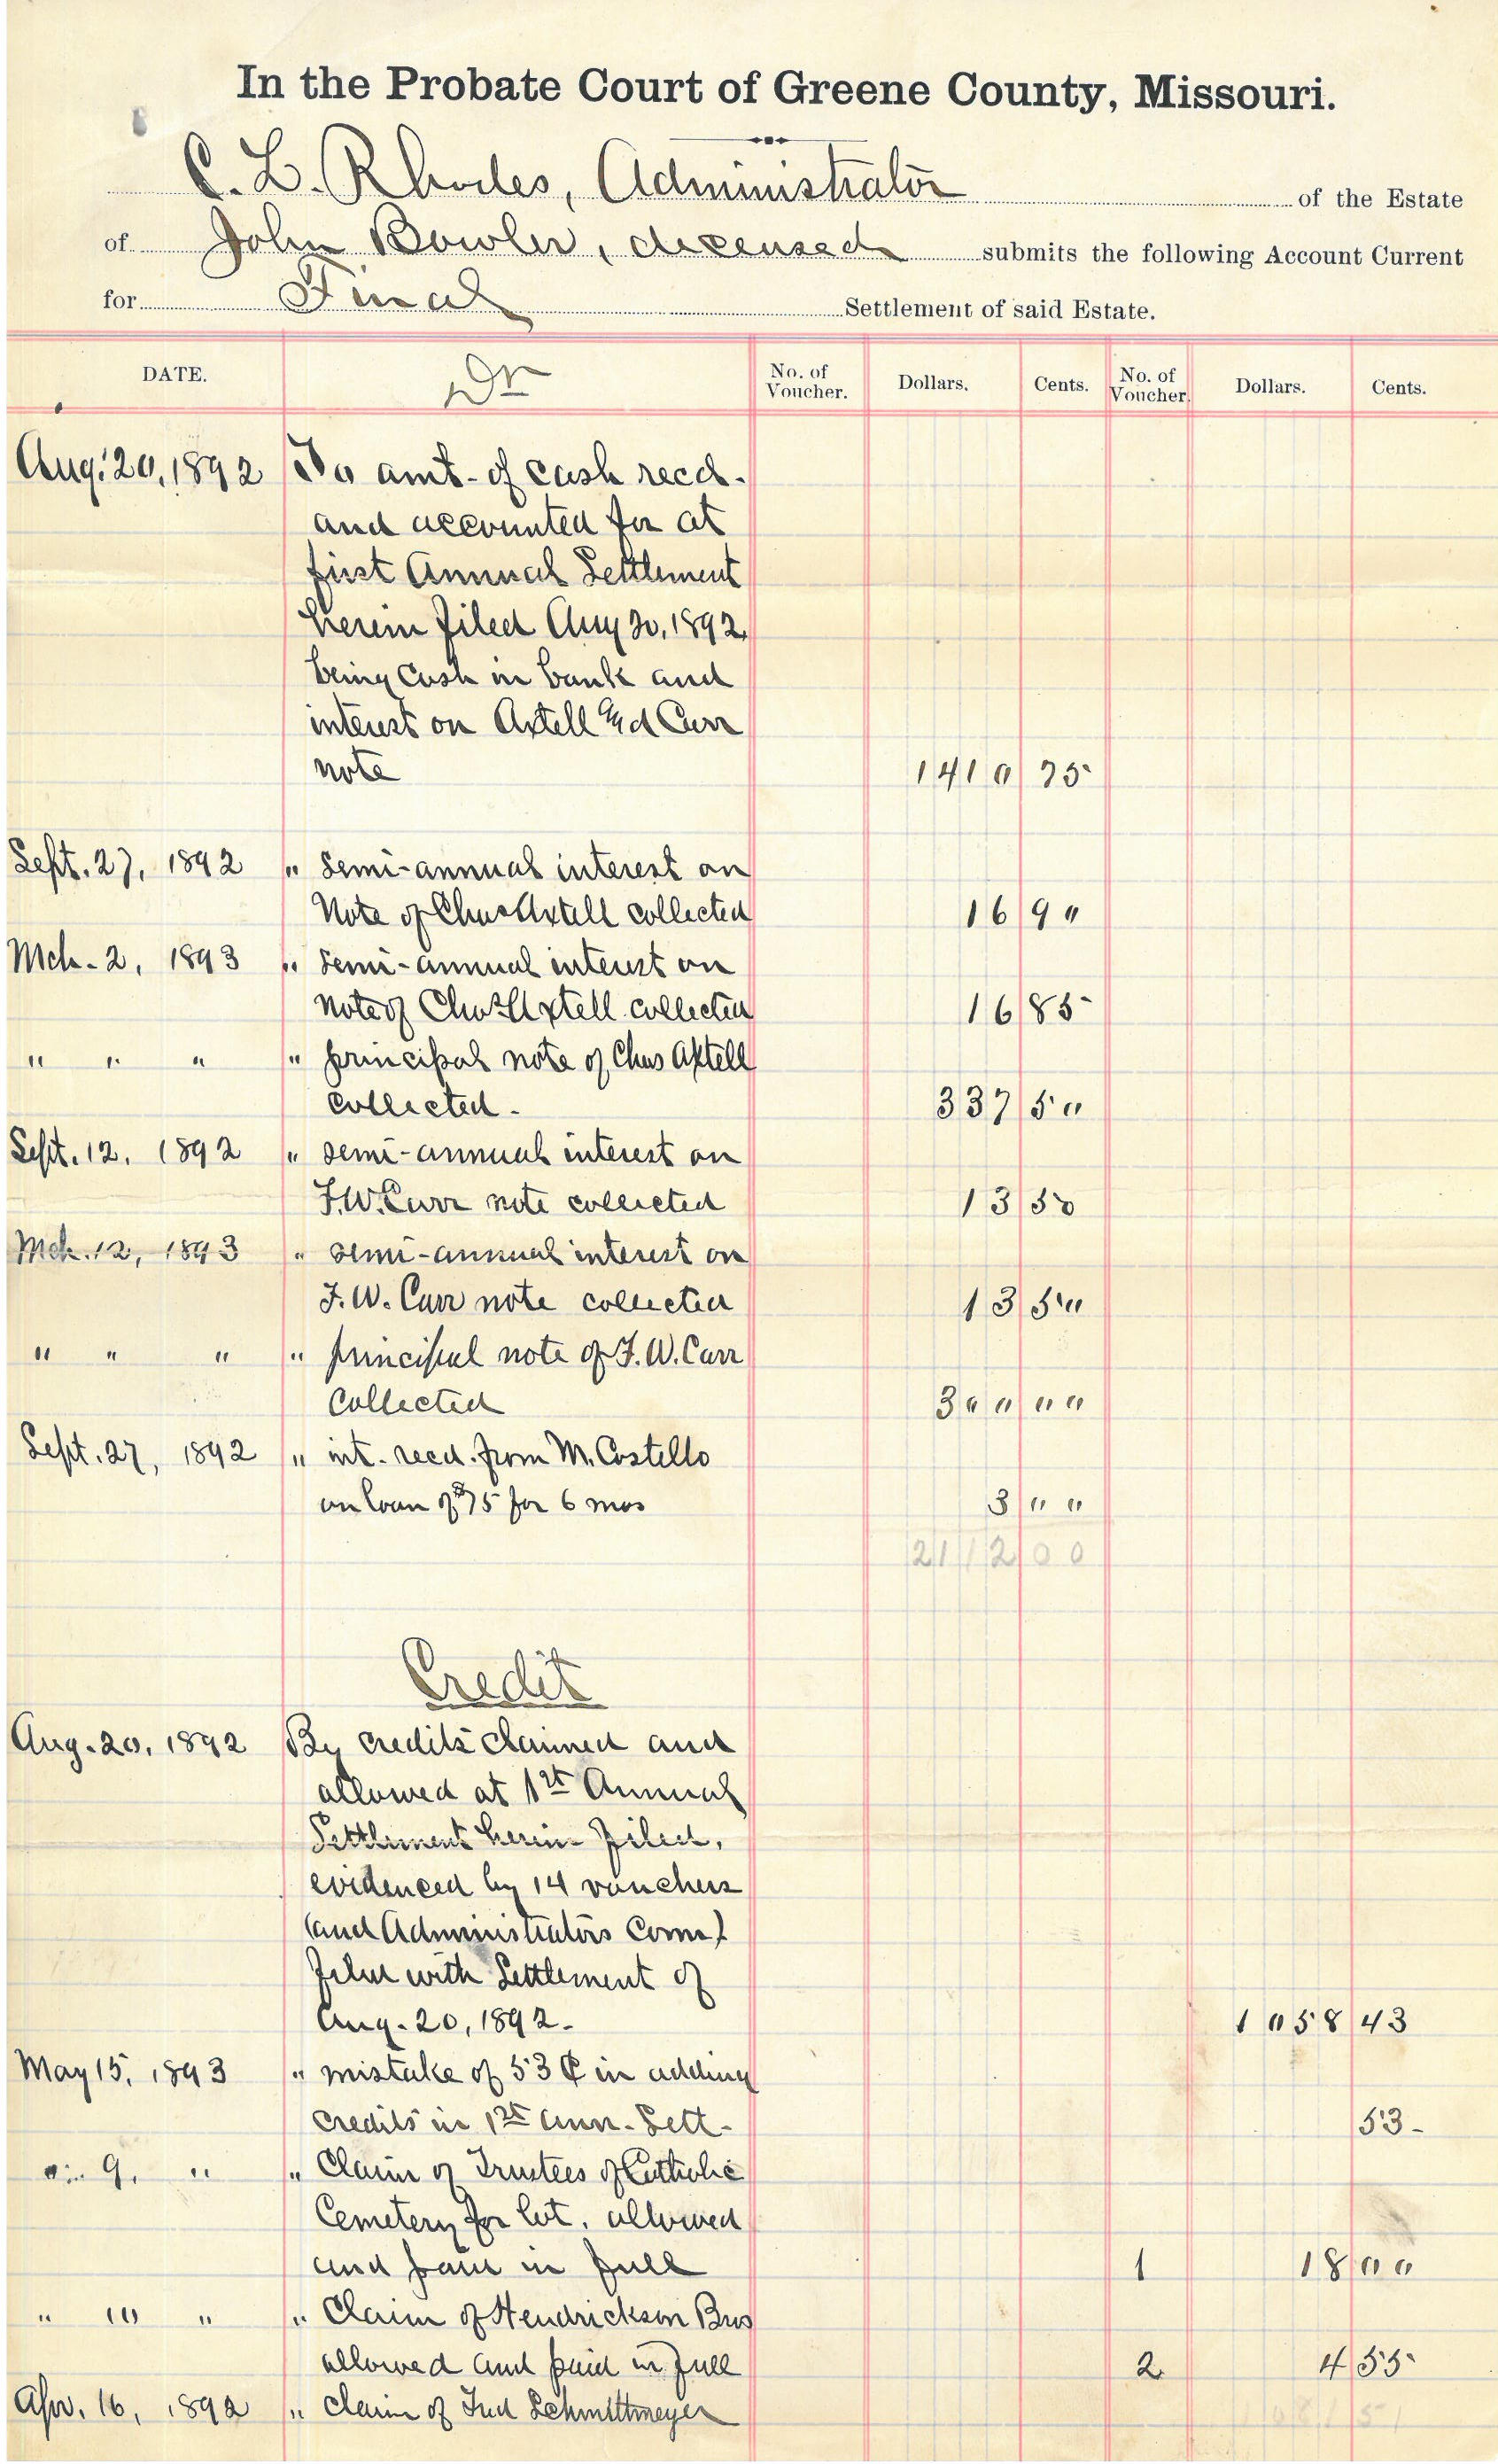 In the Probate Court of Greene County, Missouri.
C. L. Rhodes, Administrator of the Estate
of John Bowler, deceased submits the following Account Current
for Final Settlement of said Estate.
DATE. Dr No. of Voucher. Dollars. Cents. No. of Voucher. Dollars. Cents.
Aug. 20, 1892 To amt. of cash recd.
and accounted for at
first Annual Settlement
herein filed Aug 20, 1892,
being Cash in bank and
interest on Axtell and Carr
note 1410 75
Sept. 27, 1892 " semi-annual interest on
Note of Chas Axtell collected 16 90
Mch. 2, 1893 " semi-annual interest on
note of Chas Axtell collected 16 85
" " " " principal note of Chas Axtell
collected. 337 50
Sept. 12, 1892 " semi-annual interest on
F.W. Carr note collected 13 50
Mch. 12, 1893 " semi-annual interest on
F. W. Carr note collected 13 50
" " " " principal note of F. W. Carr
Collected 300 00
Sept. 27, 1892 " int. recd. from M. Costello
on loan of $75 for 6 mos 3 00
2112 00
Credit
Aug. 20, 1892 By credits claimed and
allowed at 1st Annual
Settlement herein filed,
evidenced by 14 vouchers
(and Administrators Com.)
filed with Settlement of
Aug. 20, 1892. 1058 43
May 15, 1893 " mistake of 53 ¢ in adding
credits in 1st Ann. Sett. 53
" 9, " " Claim of Trustees of Catholic
Cemetery for lot, allowed
and paid in full 1 18 00
" 10 " " Claim of Hendrickson Bros
allowed and paid in full 2 4 55
Apr. 16, 1892 " Claim of Schmittmeyer